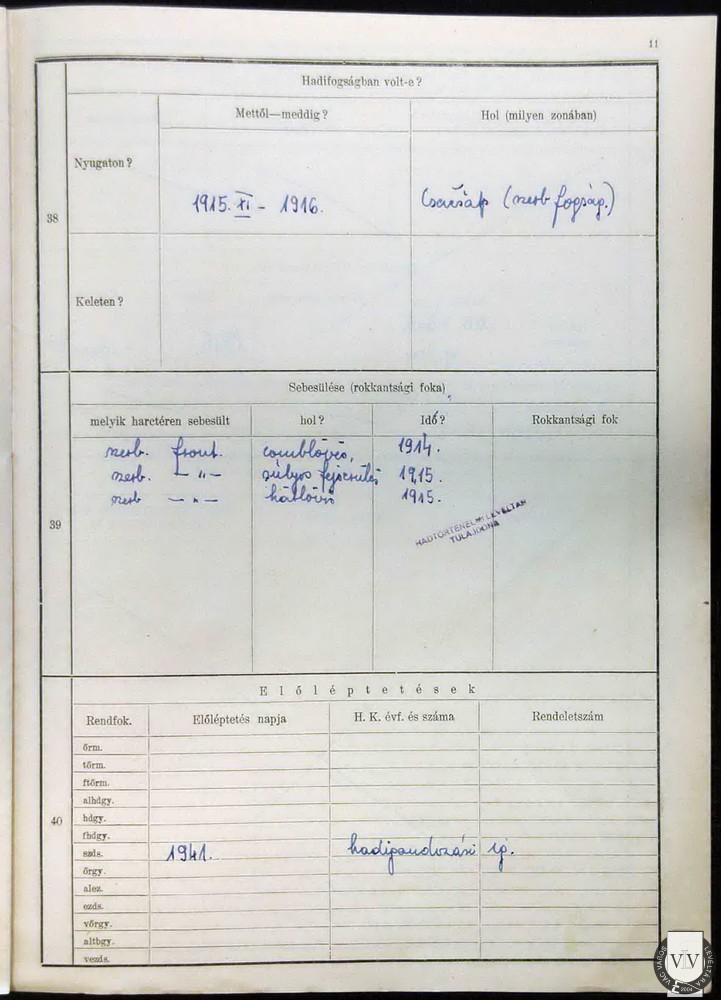 11
Hadifogságban volt-e?
Mettől—meddig? Hol (milyen zonában)
Nyugaton?
1915. XI - 1916. (szerb fogság.)
38
Keleten?
Sebesülése (rokkantsági foka)
melyik harctéren sebesült hol? Idő? Rokkantsági fok
szerb. front. comblövés, 1914.
szerb. — „ — súlyos fejsérülés 1915.
szerb — „ — hátlövés 1915.
39
HADTÖRTÉNELMI LEVÉLTÁR
TULAJDONA
Előléptetések
Rendfok. Előléptetés napja H. K. évf. és száma Rendeletszám
őrm.
törm.
ftörm.
alhdgy.
hdgy.
40
fhdgy.
szds. 1941. hadigondozási ig.
őrgy.
alez.
ezds.
vőrgy.
altbgy.
vezds.
VÁC VÁROS LEVÉLTÁRA
VVL
2004